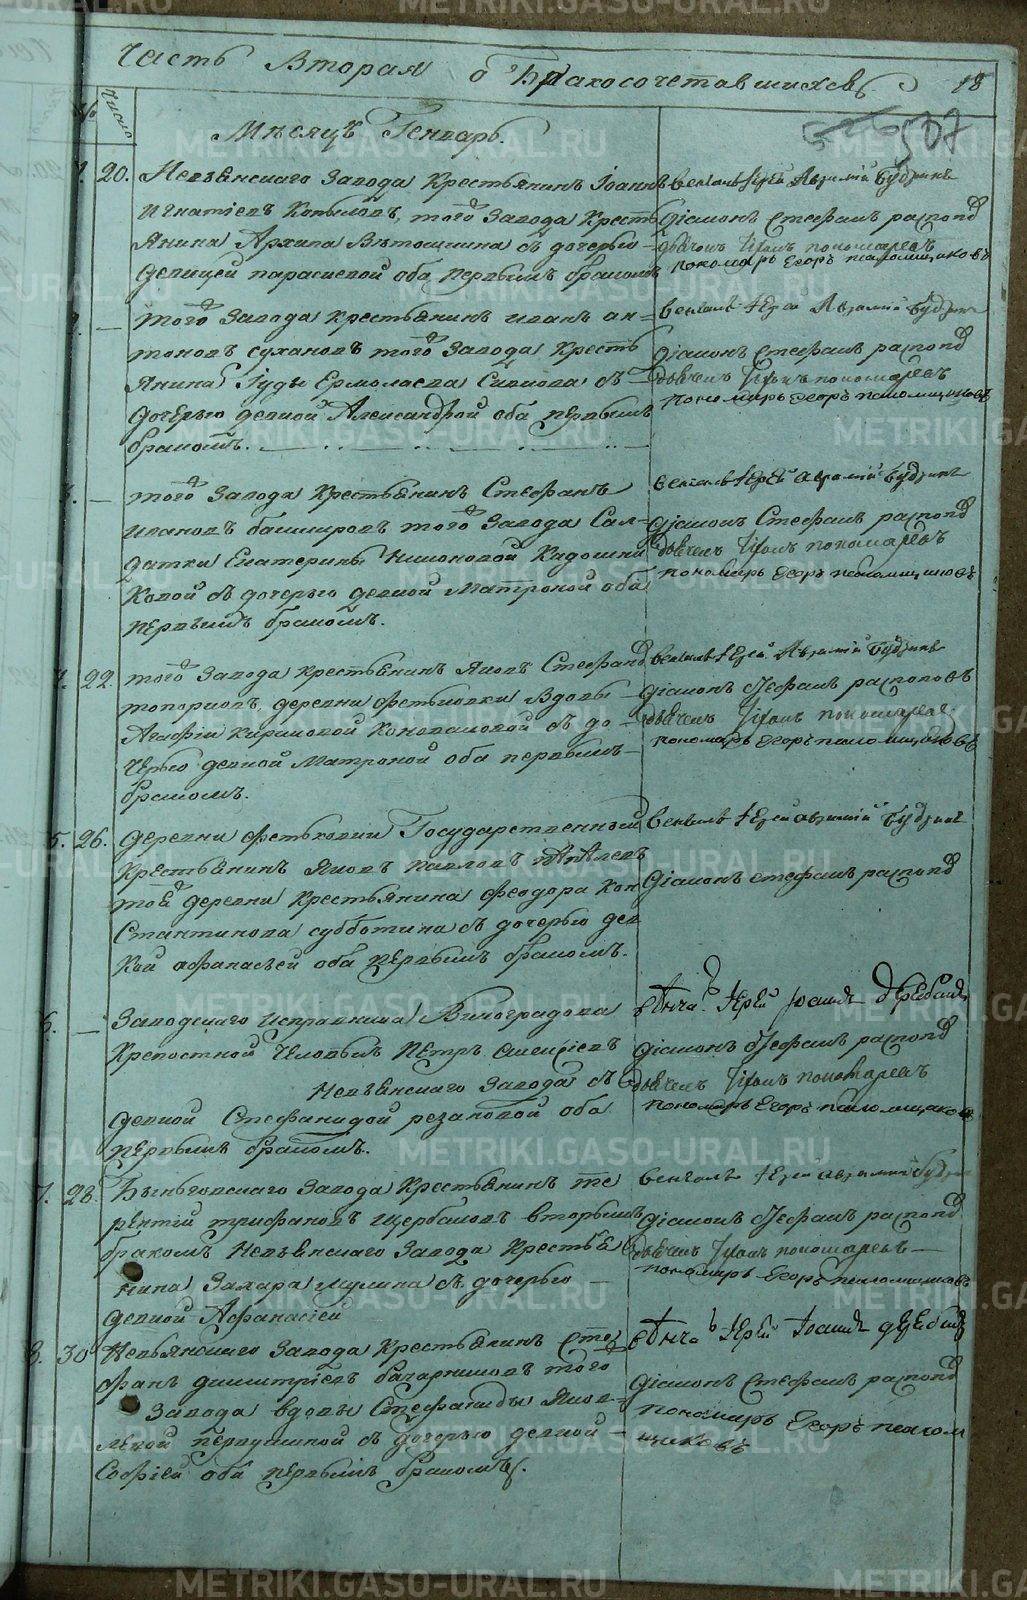 Часть Вторая о Бракосочетавшихсѧ. 18
507
№ Число
Мѣсяцъ Генварь.
1. 20. Невьянскаго Завода Крестьянинъ Іоаннъ
Игнатіевъ Копыловъ, того Завода Кресть
янина Архипа с дочерью
девицей параскевой оба первымъ бракомъ
венчалъ Іерей Аврамій Будринъ
Діаконъ Стефанъ распопо
дьячекъ пономаревъ
пономарь Егоръ паломщиковъ
2. — того Завода крестьянинъ иванъ ан
тоновъ сухановъ того Завода Кресть
янина Іуды Ермолаева съ
дочерью девкой Александрой оба первымъ
бракомъ.
венчалъ Іерей Аврамій Будринъ
Діаконъ Стефанъ распопо
дьячекъ пономаревъ
пономарь Егоръ паломщиковъ
3. — того Завода Крестьянинъ Стефанъ
ивановъ башкировъ того Завода Сал
датки Екатерины
съ дочерью девкой Матроной оба
первымъ бракомъ.
венчалъ Іерей Аврамій Будринъ
Діаконъ Стефанъ распопо
дьячекъ пономаревъ
пономарь Егоръ паломщиковъ
4. 22. того Завода крестьянинъ Яковъ Стефано
топорковъ, деревни Вдовы
Агафіи Кириловой Коноваловой съ до
черью девкой Матроной оба первымъ
бракомъ.
венчалъ Іерей Аврамій Будринъ
Діаконъ Стефанъ распоповъ
дьячекъ пономаревъ
пономарь Егоръ паломщиковъ
5. 26. деревни Государственной
крестьянинъ Яковъ павловъ
той деревни крестьянина Феодора Кон
стантинова субботина съ дочерью дев
кой афанасьей оба первымъ бракомъ.
венчалъ Іерей аврамій Будринъ
Діаконъ стефанъ распопо
6. — Заводскаго исправника Виноградова
крепостной человекъ Петръ алексіевъ
Невьянскаго Завода съ
девкой Стефанидой резановой оба
первымъ бракомъ.
вѣнча Іерей Іоаннъ
Діаконъ Стефанъ распопо
дьячекъ пономаревъ
пономарь Егоръ паломщиковъ
7. 28. Быньговскаго Завода Крестьянинъ те
рентій трифановъ щербаковъ вторымъ
бракомъ Невьянскаго Завода Крестья
нина Захара съ дочерью
девкой Афанасіей
венчалъ Іерей аврамій Будри
Діаконъ Стефанъ распопо
дьячекъ пономаревъ
пономарь Егоръ паломщиковъ
8. 30 Невьянскаго Завода Крестьянинъ сте
фанъ димитріевъ того
Завода вдовы Стефаниды Яков
левой съ дочерью девкой
Софіей оба первымъ бракомъ.
вѣнча Іерей Іоаннъ
Діаконъ Стефанъ распопо
пономарь Егоръ паллом
щиковъ
METRIKI.GASO-URAL.RU